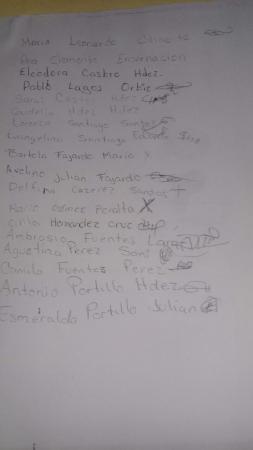 Maria Leonardo
Ana Clemente Encarnacion
Eleodora Castro Hdez.
Pablo Lagos
Castro Hdez
Hdez Hdez
Lorenzo Santiago Santos
Evangelina Santiago
Bartola Fajardo Mario
Avelino Julian Fajardo
Delfina Cazerez Santos
Peralta
Cirila Hernandez Cruz
Ambrosio Fuentes
Agustina Perez Sans
Camilo Fuentes Perez
Antonio Portillo Hdez
Esmeralda Portillo Julian